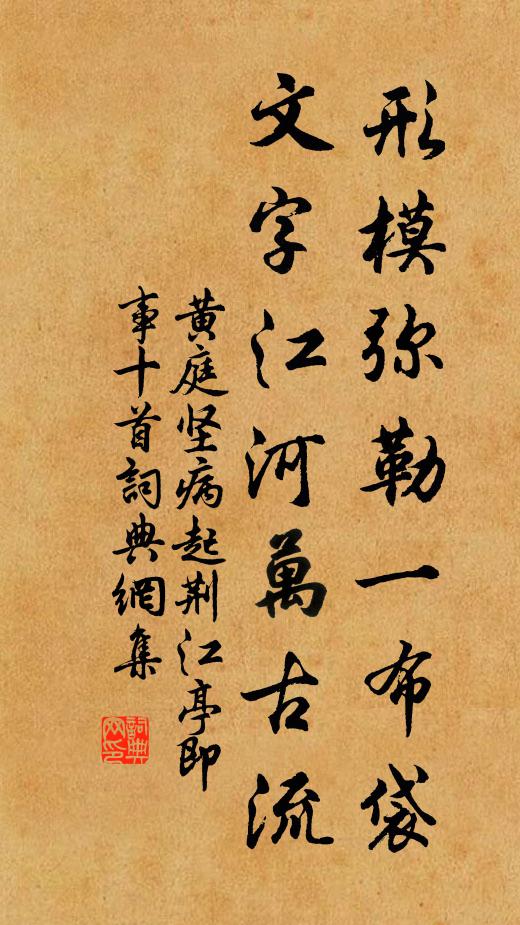 形模弥勒一布袋
文字江河萬古流
黄庭坚病起荆江亭即
事十首詞典網集
詞典
网印